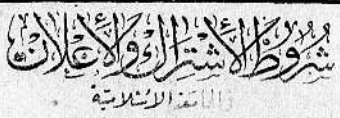 شُرُوطُ الْأِشْتِرَاكِ وَالْأِعْلَانِ